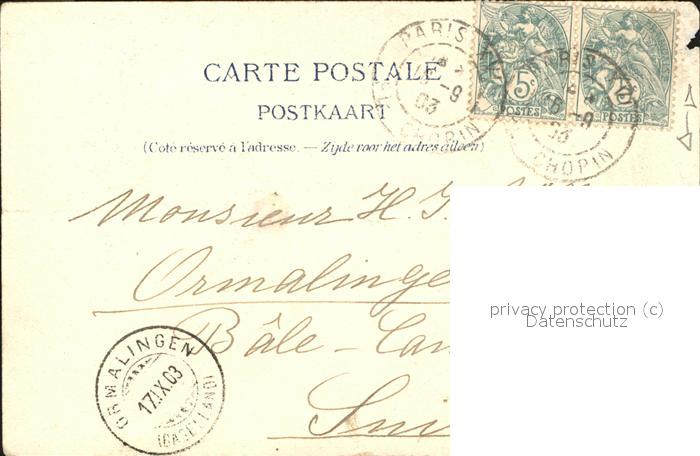 CARTE POSTALE
POSTKAART
(Coté réservé à l'adresse. — Zijde voor het adres alleen)
PARIS
03
CHOPIN
5c
POSTES
POSTES
CHOPIN
Monsieur H. J.
Ormalinge
Bâle - Can
Sui
ORMALINGEN
17.IX.03
(BASELLAND)
privacy protection (c)
Datenschutz